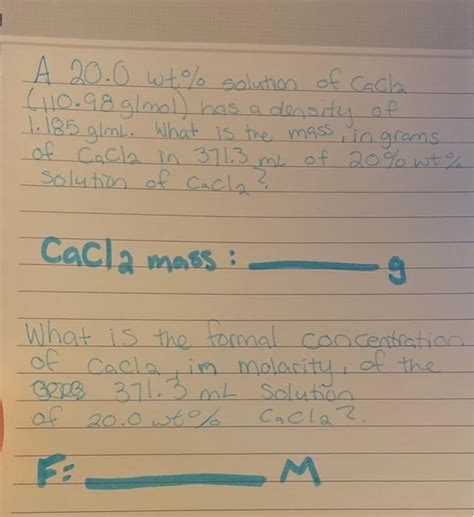 A 20.0 wt% solution of CaCl2
(110.98 g/mol) has a density of
1.185 g/mL. What is the mass, in grams
of CaCl2 in 371.3 mL of 20% wt%
solution of CaCl2?
CaCl2 mass: ______ g
What is the formal concentration
of CaCl2, in molarity, of the
371.3 mL solution
of 20.0 wt% CaCl2?
F: ______ M